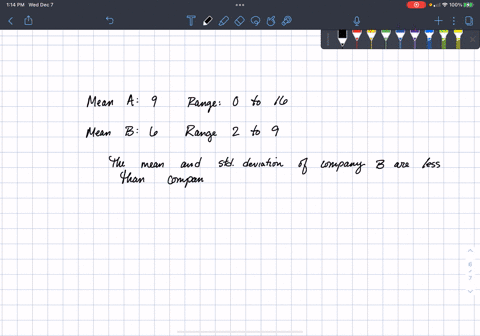 1:14 PM Wed Dec 7
100%
Mean A: 9 Range: 0 to 16
Mean B: 6 Range 2 to 9
The mean and std. deviation of company B are less
than compan